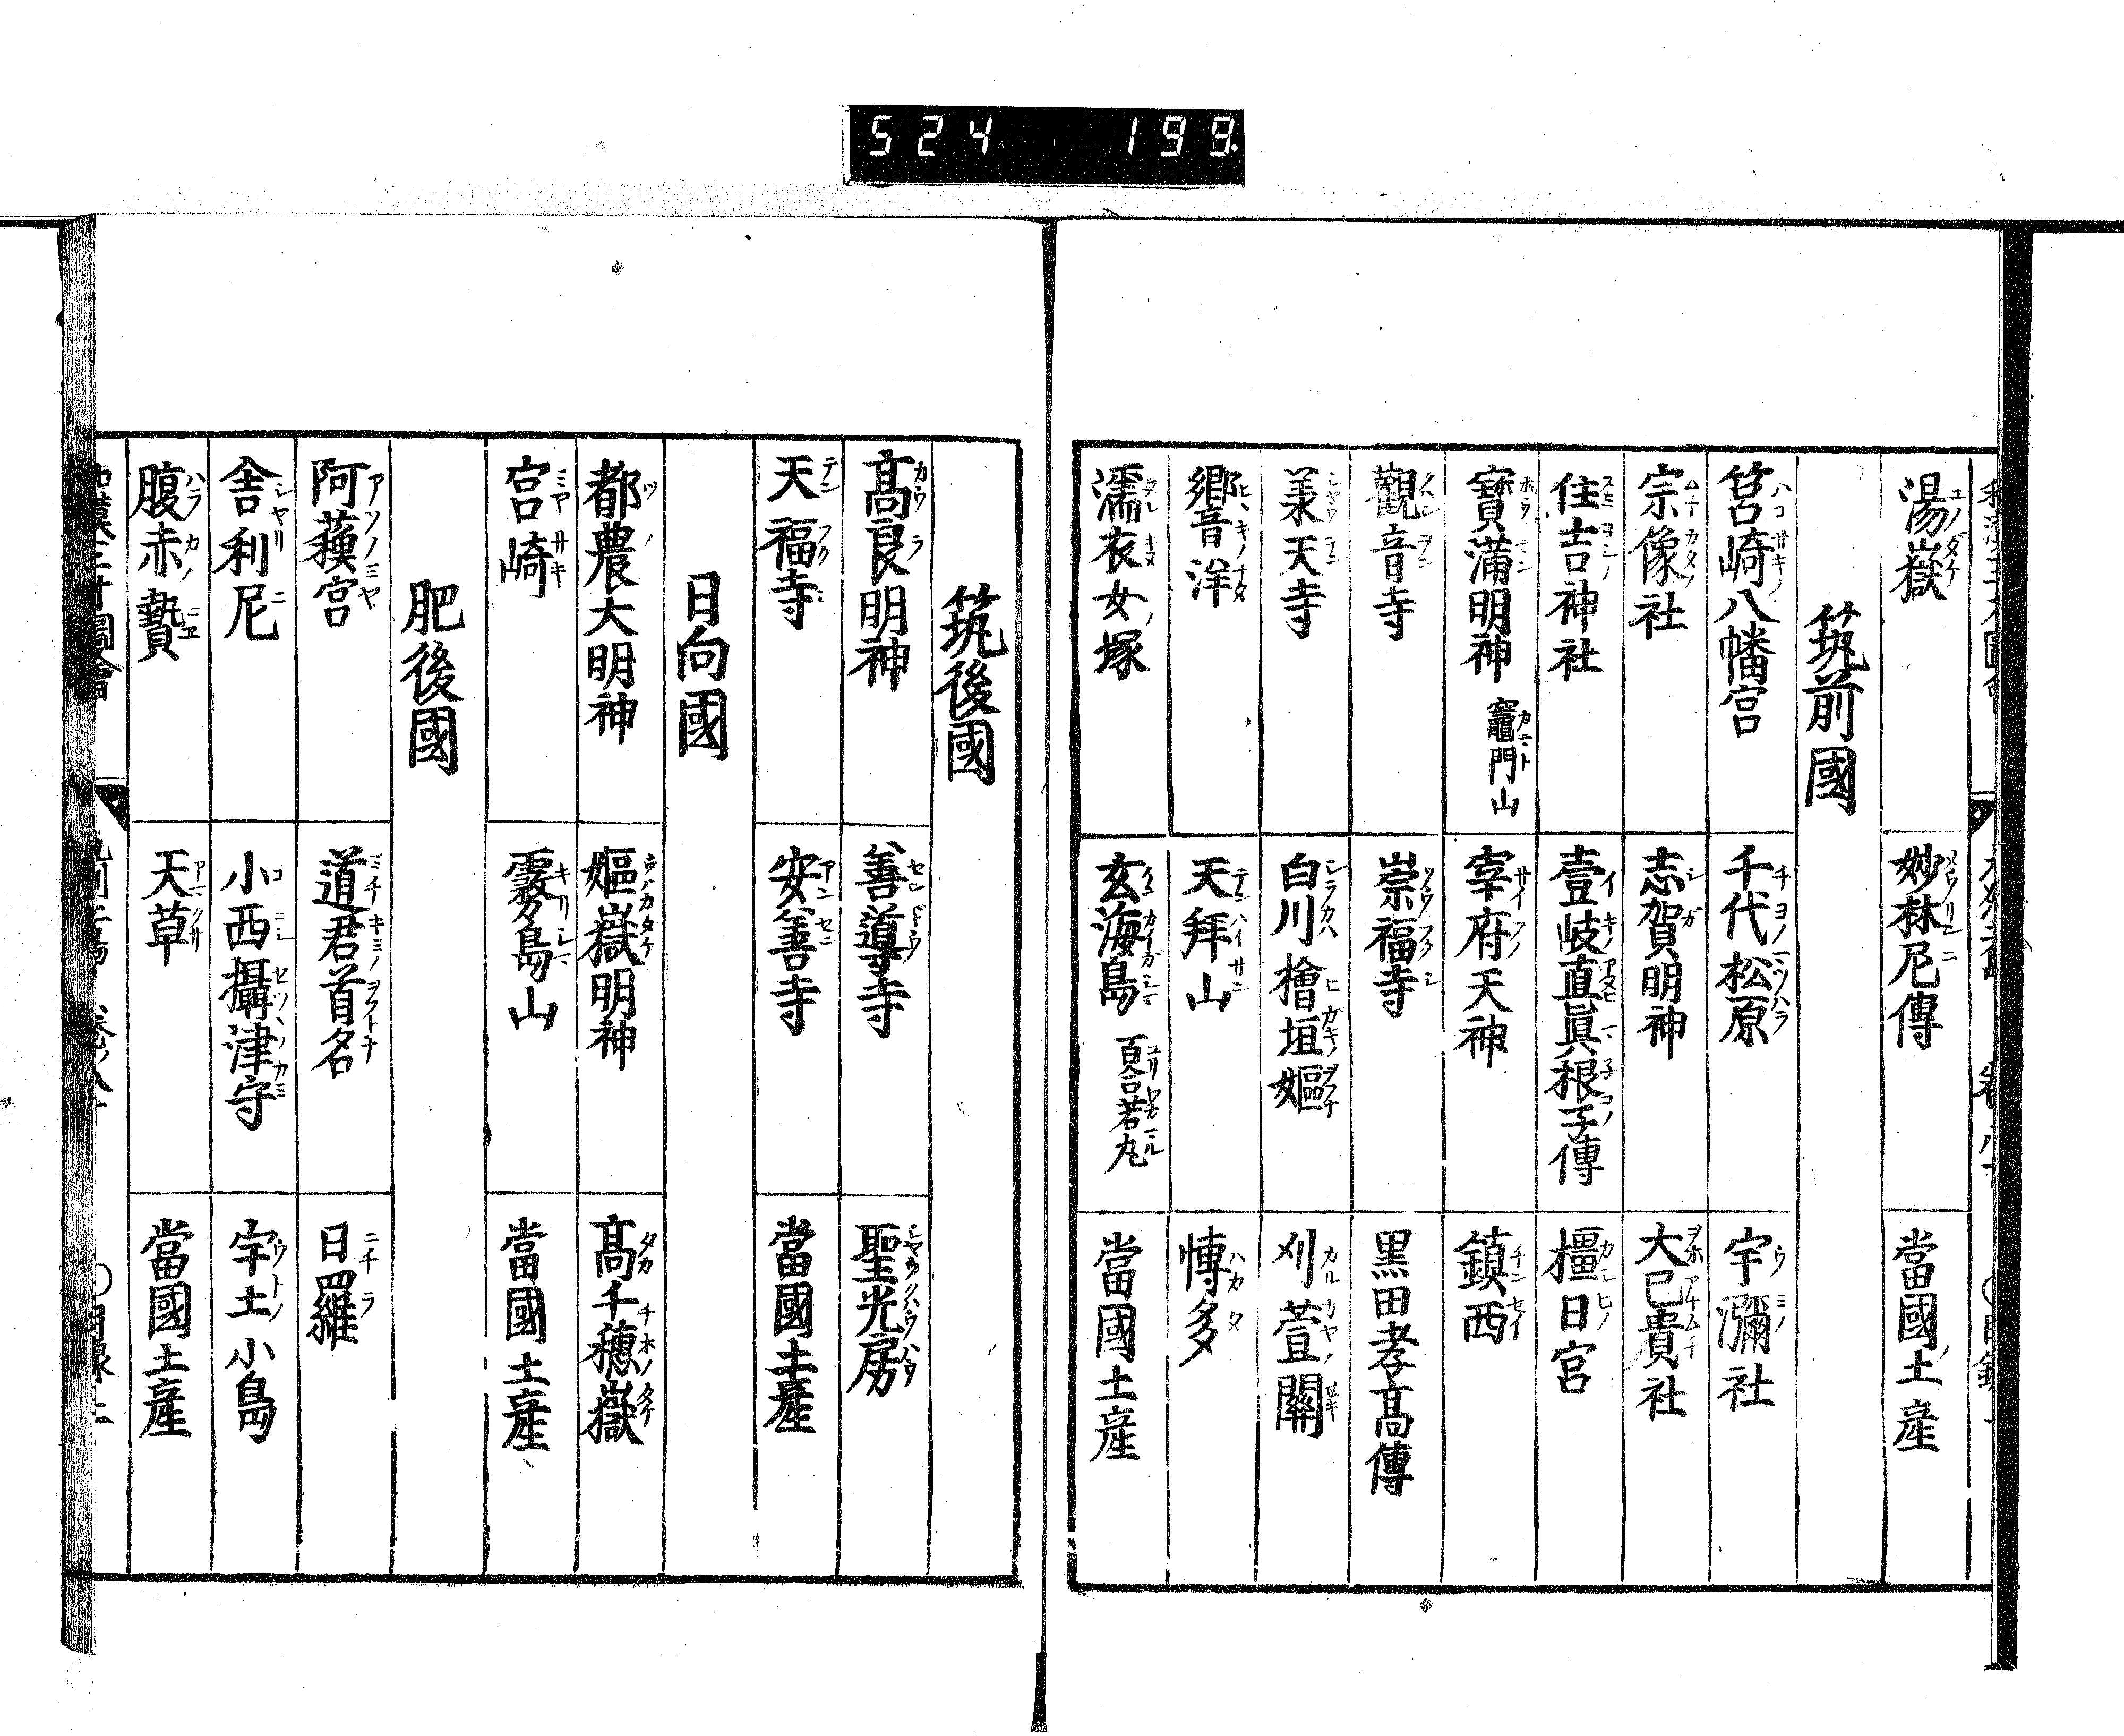 524 199
湯嶽 妙林尼傳 當國土產
筑前國
筥崎八幡宮 千代松原 宇瀰社
宗像社 志賀明神 大已貴社
住吉神社 壹岐直眞根子傳 橿日宮
寶滿明神 竈門山 宰府天神 鎮西
觀音寺 崇福寺 黒田孝髙傳
羕天寺 白川檜垣嫗 刈萱關
響洋 天拜山 愽多
濡衣女塚 玄海島 百合若丸 當國土產
筑後國
髙良明神 善導寺 聖光房
天福寺 安善寺 當國土產
日向國
都農大明神 嫗嶽明神 髙千穗嶽
宮崎 霧島山 當國土產
肥後國
阿蘓宮 道君首名 日羅
舎利尼 小西攝津守 宇土小島
腹赤贄 天草 當國土產